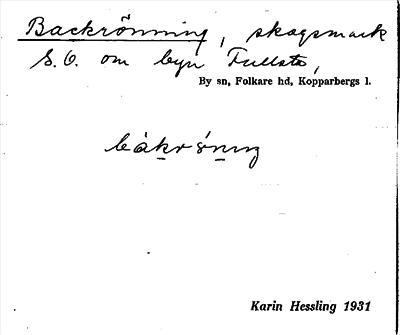 Backrönning, skogsmark
S.O. om byn Fullsta,
By sn, Folkare hd, Kopparbergs l.
bàkrö́nıng
Karin Hessling 1931